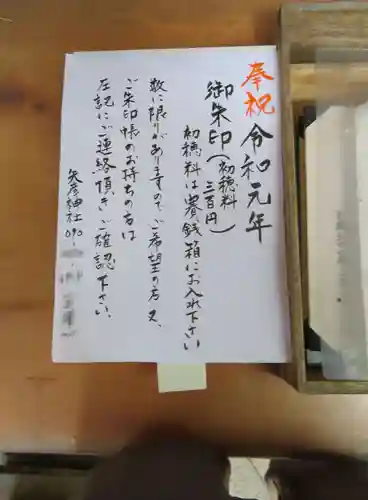 奉祝 令和元年
御朱印(初穂料 三百円)
初穂料は賽銭箱にお入れ下さい
数に限りがありますので、ご希望の方又、
ご朱印帳のお持ちの方は
左記にご連絡頂きご確認下さい、
矢彦神社 090-